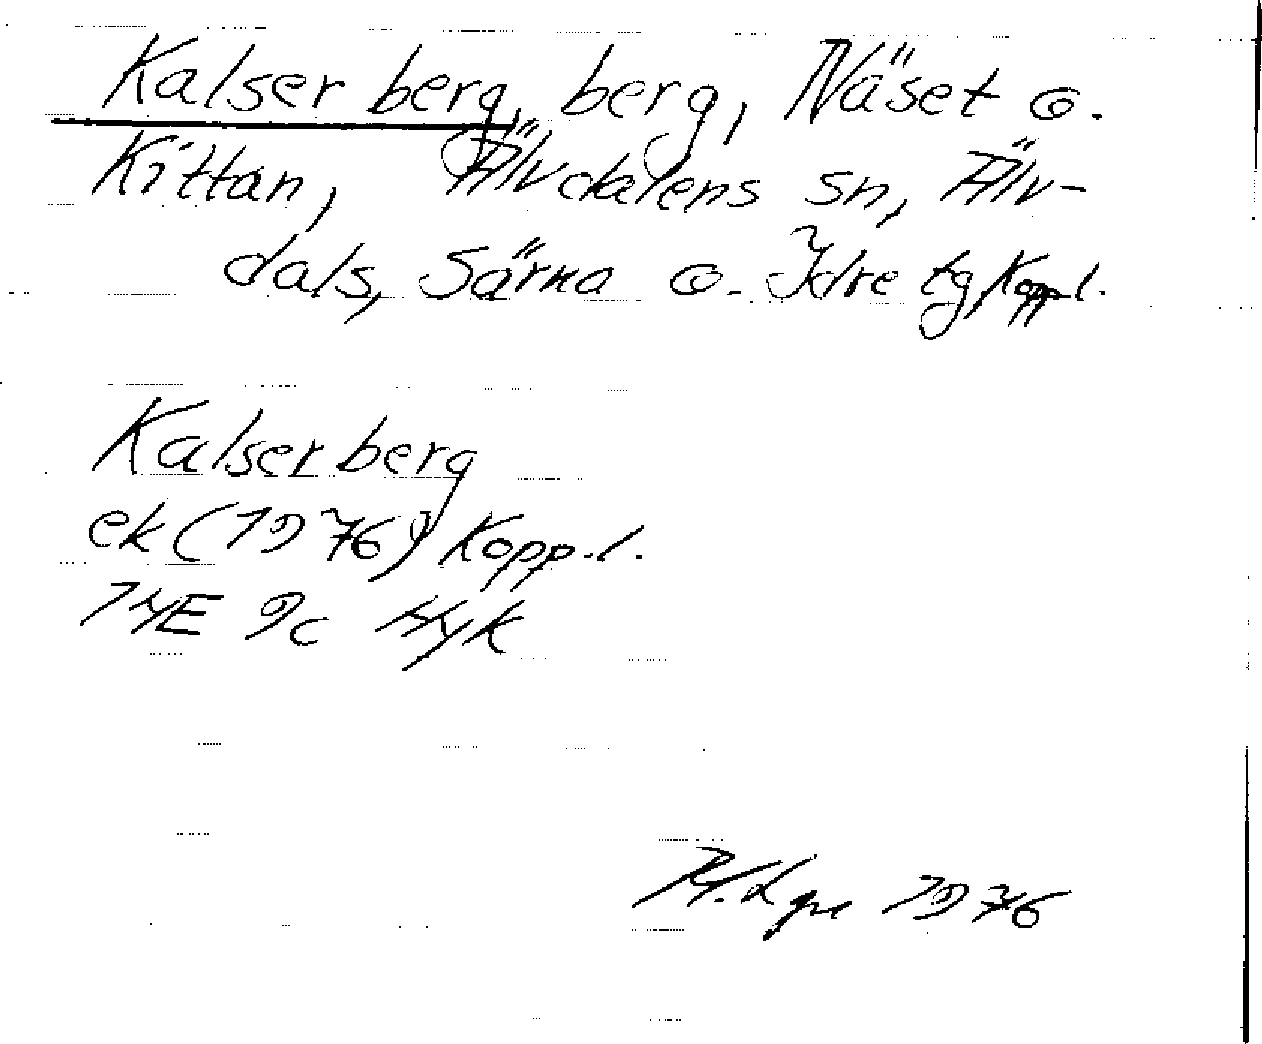 Kalserberg, berg, Näset o.
Kittan, Älvdalens sn, Älv-
dals, Särna o. Idre tg, Kopp.l.
Kalserberg
ek (1976) Kopp.l.
14E 9c Hyk
1976